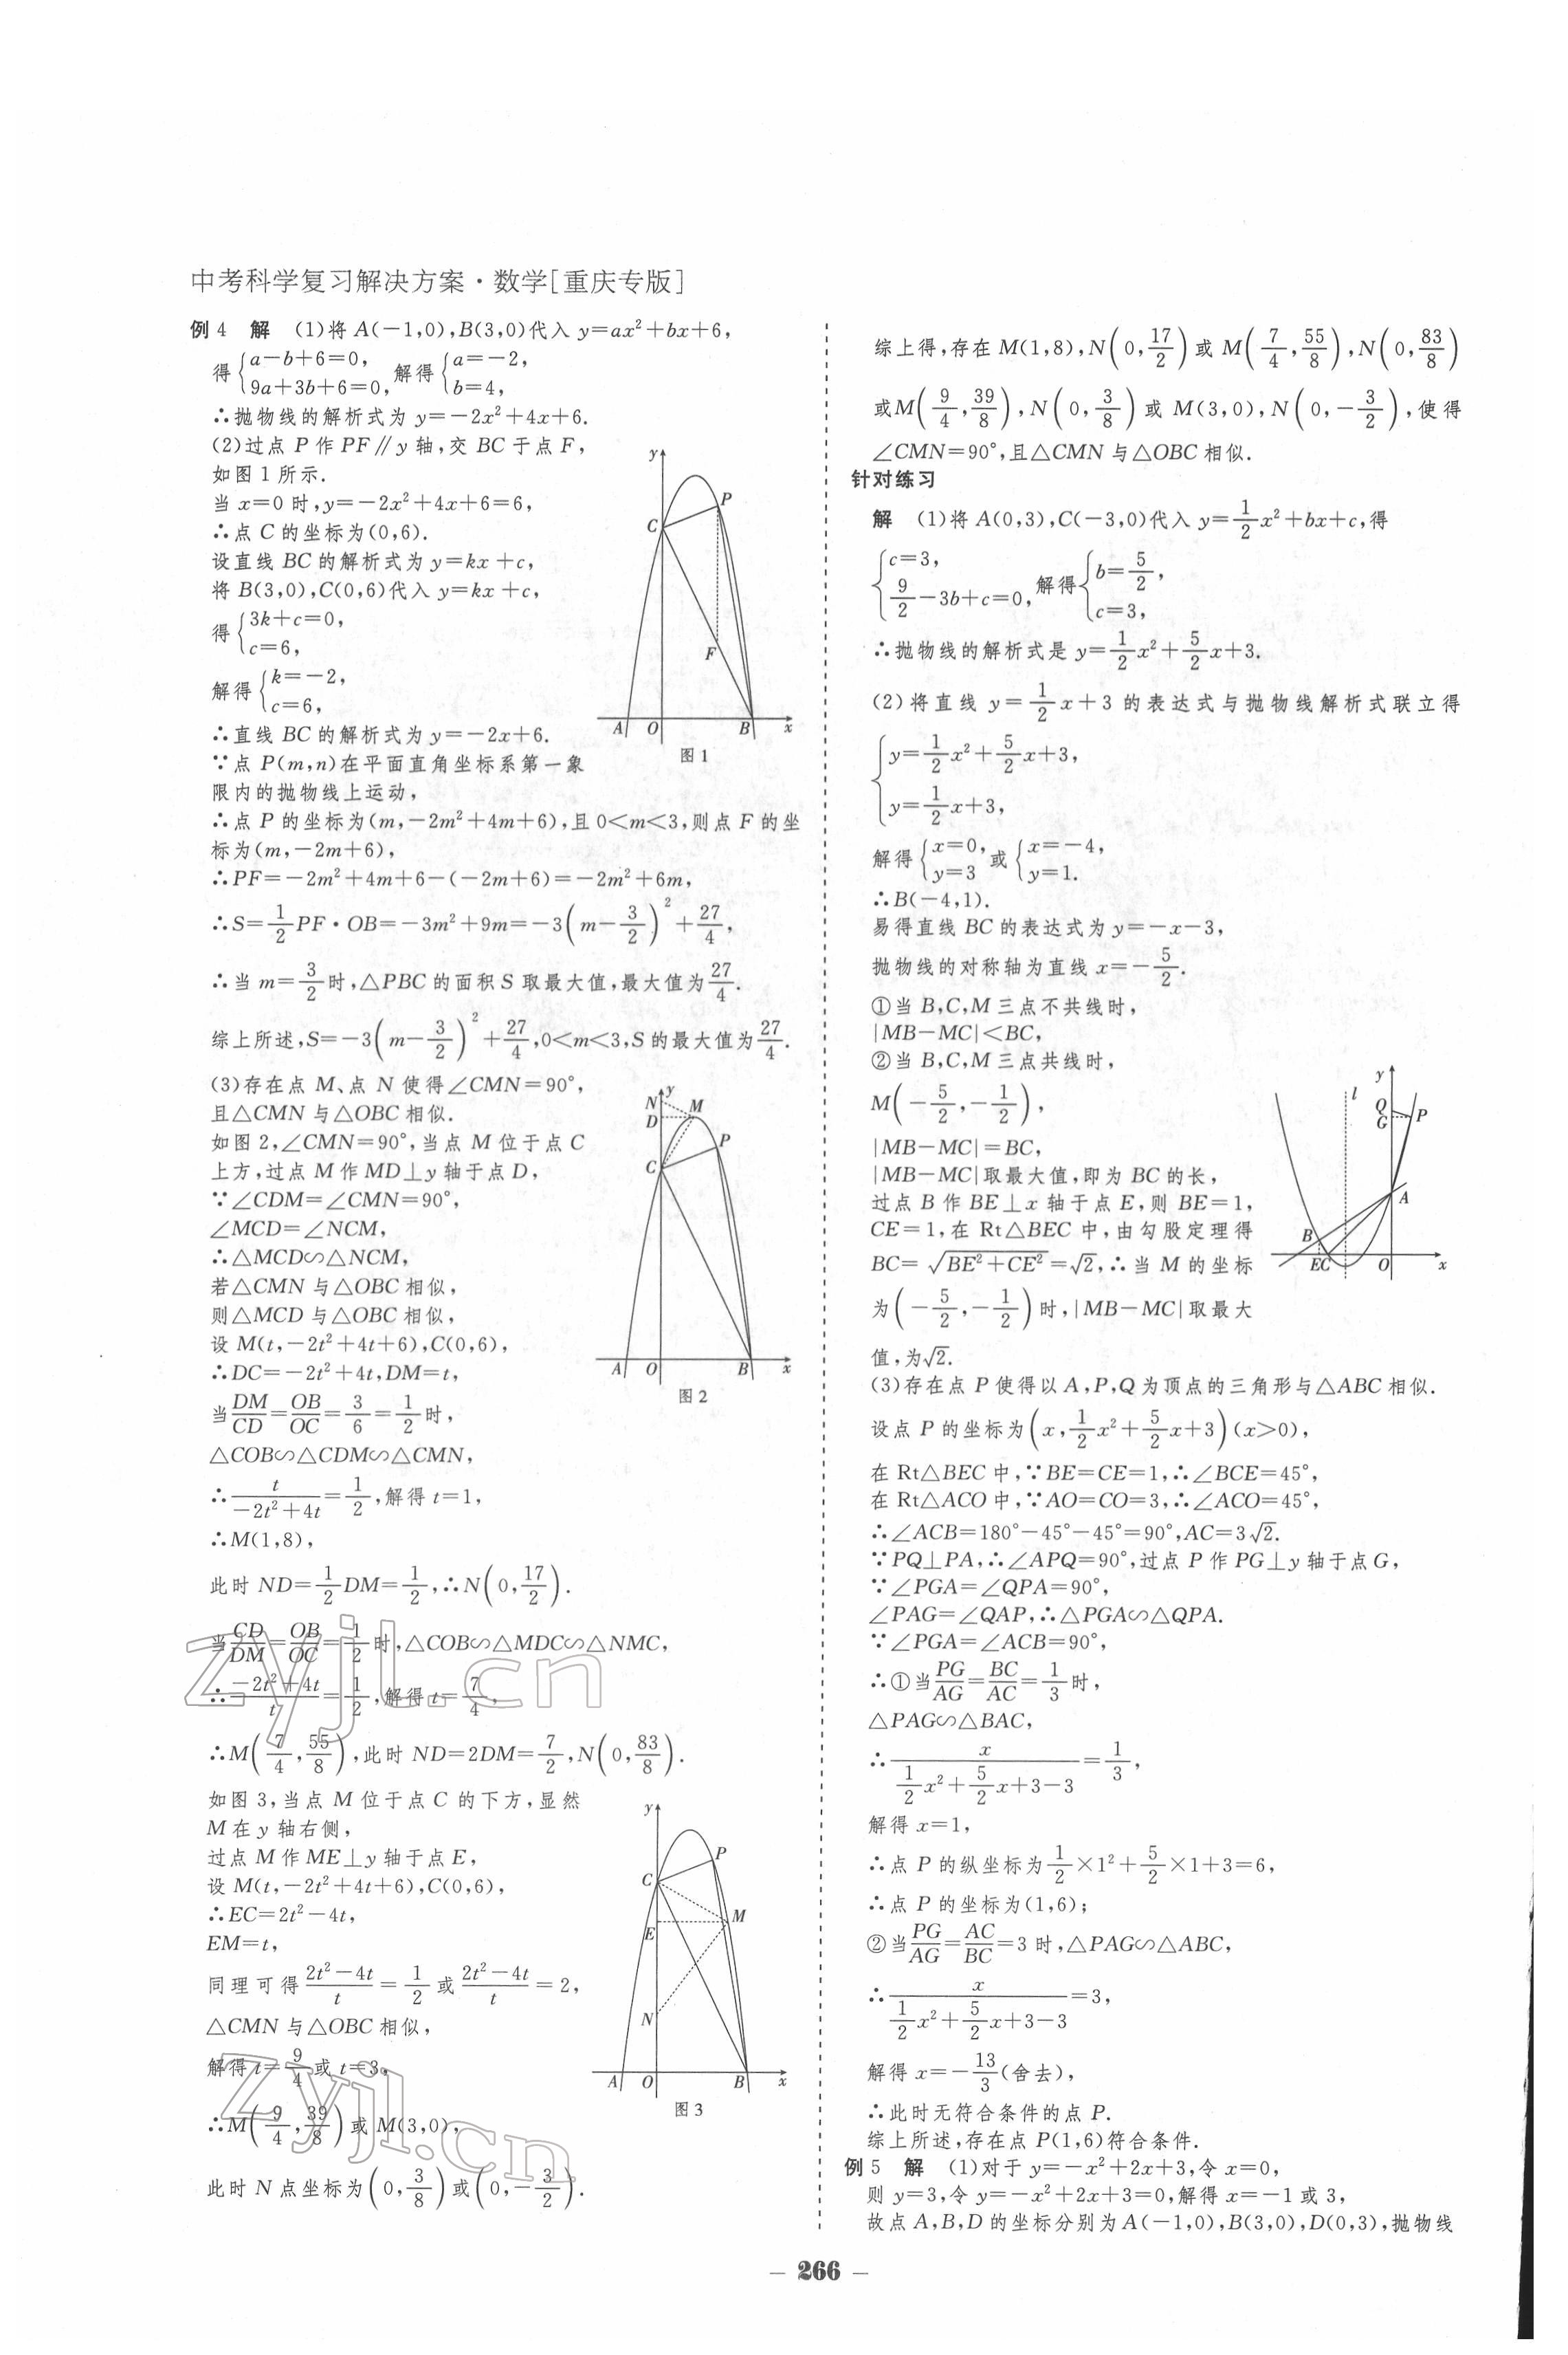 中考科学复习解决方案·数学[重庆专版]
例4 解 (1)将 A(-1,0),B(3,0)代入 y=ax²+bx+6,
得{a-b+6=0, 9a+3b+6=0, 解得{a=-2, b=4,
∴抛物线的解析式为 y=-2x²+4x+6.
(2)过点 P 作 PF∥y 轴,交 BC 于点 F,
如图 1 所示.
当 x=0 时,y=-2x²+4x+6=6,
∴点 C 的坐标为(0,6).
设直线 BC 的解析式为 y=kx+c,
将 B(3,0),C(0,6)代入 y=kx+c,
得{3k+c=0, c=6,
解得{k=-2, c=6,
∴直线 BC 的解析式为 y=-2x+6.
∵点 P(m,n)在平面直角坐标系第一象
限内的抛物线上运动,
∴点 P 的坐标为(m,-2m²+4m+6),且 0<m<3,则点 F 的坐
标为(m,-2m+6),
∴PF=-2m²+4m+6-(-2m+6)=-2m²+6m,
∴S=1/2 PF·OB=-3m²+9m=-3(m-3/2)²+27/4,
∴当 m=3/2 时,△PBC 的面积 S 取最大值,最大值为 27/4.
综上所述,S=-3(m-3/2)²+27/4,0<m<3,S 的最大值为 27/4.
(3)存在点 M、点 N 使得∠CMN=90°,
且△CMN 与△OBC 相似.
如图 2,∠CMN=90°,当点 M 位于点 C
上方,过点 M 作 MD⊥y 轴于点 D,
∵∠CDM=∠CMN=90°,
∠MCD=∠NCM,
∴△MCD∽△NCM,
若△CMN 与△OBC 相似,
则△MCD 与△OBC 相似,
设 M(t,-2t²+4t+6),C(0,6),
∴DC=-2t²+4t,DM=t,
当 DM/CD=OB/OC=3/6=1/2 时,
△COB∽△CDM∽△CMN,
∴t/(-2t²+4t)=1/2,解得 t=1,
∴M(1,8),
此时 ND=1/2 DM=1/2,∴N(0,17/2).
当 CD/DM=OB/OC=1/2 时,△COB∽△MDC∽△NMC,
∴(-2t²+4t)/t=1/2,解得 t=7/4,
∴M(7/4,55/8),此时 ND=2DM=7/2,N(0,83/8).
如图 3,当点 M 位于点 C 的下方,显然
M 在 y 轴右侧,
过点 M 作 ME⊥y 轴于点 E,
设 M(t,-2t²+4t+6),C(0,6),
∴EC=2t²-4t,
EM=t,
同理可得 (2t²-4t)/t=1/2 或 (2t²-4t)/t=2,
△CMN 与△OBC 相似,
解得 t=9/4 或 t=3,
∴M(9/4,39/8)或 M(3,0),
此时 N 点坐标为(0,3/8)或(0,-3/2).
y
C
P
F
A
O
B
x
图1
N
y
M
D
P
C
A
O
B
x
图2
y
C
P
E
M
N
A
O
B
x
图3
综上得,存在 M(1,8),N(0,17/2)或 M(7/4,55/8),N(0,83/8)
或M(9/4,39/8),N(0,3/8)或 M(3,0),N(0,-3/2),使得
∠CMN=90°,且△CMN 与△OBC 相似.
针对练习
解 (1)将 A(0,3),C(-3,0)代入 y=1/2 x²+bx+c,得
{c=3, 9/2-3b+c=0, 解得{b=5/2, c=3,
∴抛物线的解析式是 y=1/2 x²+5/2 x+3.
(2)将直线 y=1/2 x+3 的表达式与抛物线解析式联立得
{y=1/2 x²+5/2 x+3,
y=1/2 x+3,
解得{x=0, y=3 或{x=-4, y=1.
∴B(-4,1).
易得直线 BC 的表达式为 y=-x-3,
抛物线的对称轴为直线 x=-5/2.
①当 B,C,M 三点不共线时,
|MB-MC|<BC,
②当 B,C,M 三点共线时,
M(-5/2,-1/2),
|MB-MC|=BC,
|MB-MC|取最大值,即为 BC 的长,
过点 B 作 BE⊥x 轴于点 E,则 BE=1,
CE=1,在 Rt△BEC 中,由勾股定理得
BC=√(BE²+CE²)=√2,∴当 M 的坐标
为(-5/2,-1/2)时,|MB-MC|取最大
值,为√2.
(3)存在点 P 使得以 A,P,Q 为顶点的三角形与△ABC 相似.
设点 P 的坐标为(x,1/2 x²+5/2 x+3)(x>0),
在 Rt△BEC 中,∵BE=CE=1,∴∠BCE=45°,
在 Rt△ACO 中,∵AO=CO=3,∴∠ACO=45°,
∴∠ACB=180°-45°-45°=90°,AC=3√2.
∵PQ⊥PA,∴∠APQ=90°,过点 P 作 PG⊥y 轴于点 G,
∵∠PGA=∠QPA=90°,
∠PAG=∠QAP,∴△PGA∽△QPA.
∵∠PGA=∠ACB=90°,
∴①当 PG/AG=BC/AC=1/3 时,
△PAG∽△BAC,
∴x/(1/2 x²+5/2 x+3-3)=1/3,
解得 x=1,
∴点 P 的纵坐标为 1/2×1²+5/2×1+3=6,
∴点 P 的坐标为(1,6);
②当 PG/AG=AC/BC=3 时,△PAG∽△ABC,
∴x/(1/2 x²+5/2 x+3-3)=3,
解得 x=-13/3(舍去),
∴此时无符合条件的点 P.
综上所述,存在点 P(1,6)符合条件.
y
l
Q
G
P
A
B
EC
O
x
例5 解 (1)对于 y=-x²+2x+3,令 x=0,
则 y=3,令 y=-x²+2x+3=0,解得 x=-1 或 3,
故点 A,B,D 的坐标分别为 A(-1,0),B(3,0),D(0,3),抛物线
- 266 -
zyjl.cn
zyjl.cn